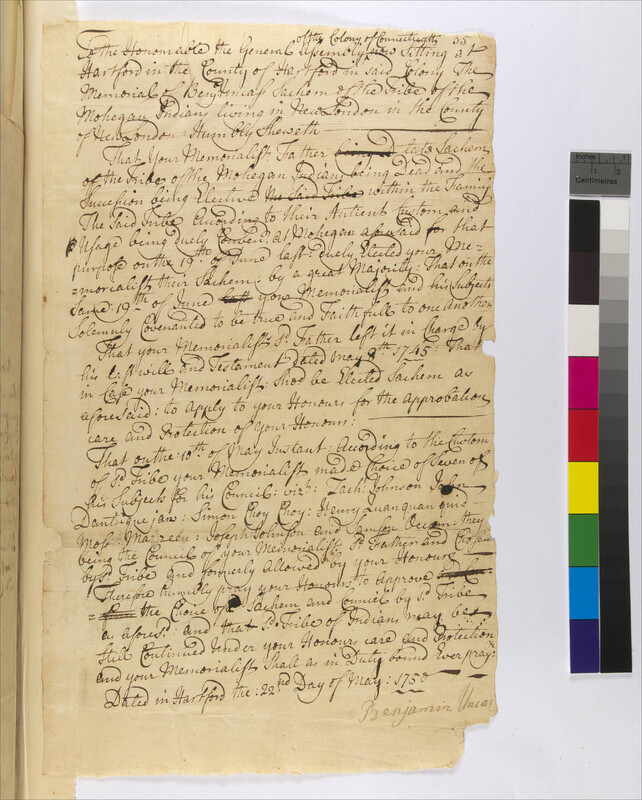 of the Colony of Connecticutt 35
To the Honourable the General Assembly, now Sitting at
Hartford in the County of Hartford in said Colony The
Memorial of Benj Uncass Sachem of the Tribe of the
Mohegan Indians living in New London in the County
of New London Humbly Sheweth
That Your Memorialist Father late Sachem
of the Tribe of the Mohegan Indians being Dead and the
Succession being Elective the Said Tribe within the Family
The Said Tribe According to their Antient Custom and
Usage being duely Conven'd At Mohegan aforesaid for that
purpose on the 19th of June last: duely Elected your Me=
=morialist their Sachem by a great Majority: That on the
Same: 19th of June last your Memorialist and his Subjects
Solemnly Covenanted to be true and Faithfull to one Another
That your Memorialists Sd. Father left it in Charge by
his last will and Testament dated May 8th 1745: That
in Case your Memorialist: Shod be Elected Sachem as
aforesaid: to Apply to your Honours for the Approbation
care and Protection of Your Honours:
That on the: 10th of May Instant: According to the Custom
of Sd Tribe your Memorialist made Choice of Seven of
his Subjects for his Council: vizt: Zach: Johnson John
Dantiquejan: Simon Choy Choy: Henry Quanquan quid
Moses Mazzeen: Joseph Johnson and Samson Occum: they
being the Council of your Memorialists Sd Father and Chosen
by Sd Tribe and formerly Allowed by your Honours
Therefore humbly pray your Honours to Approve
the Choice of Sachem and Council by Sd Tribe
as aforesd: and that Sd Tribe of Indians may be
Still Continued Under your Honours care and Protection
and your Memorialist Shall as in Duty bound Ever pray
Dated in Hartford the: 22nd Day of May: 1750
Benjamin Uncas
Inches 1 2
Centimetres